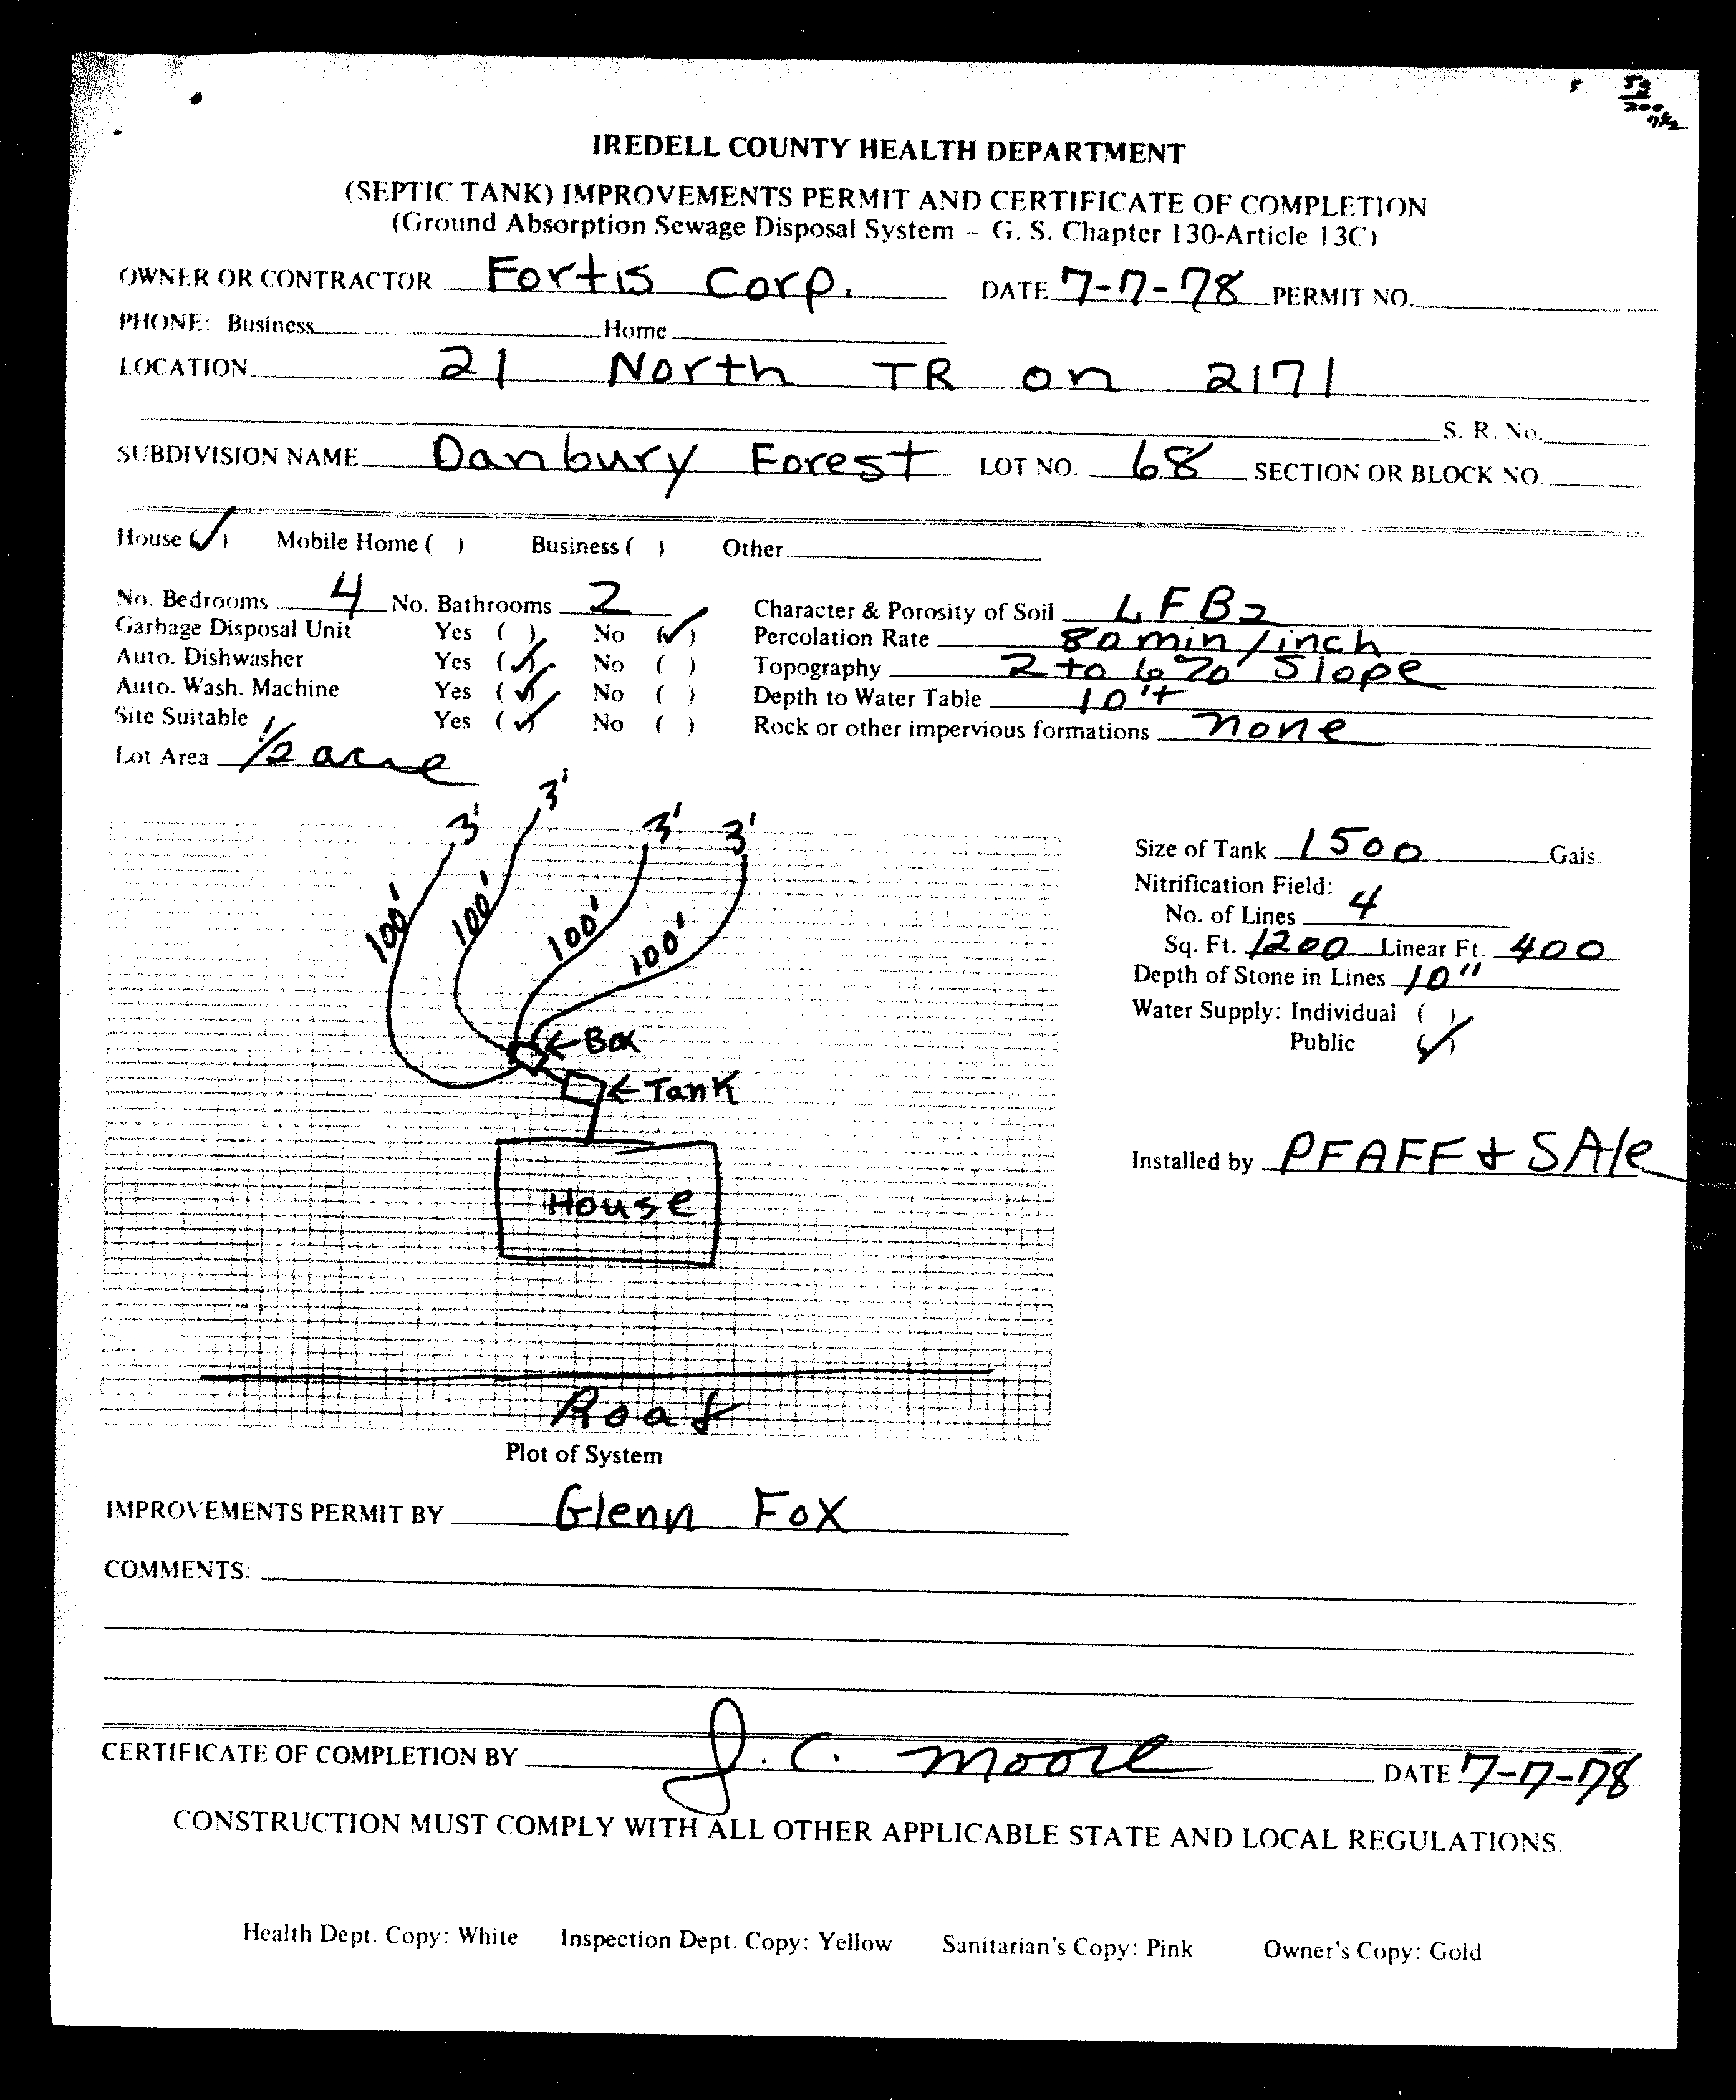 IREDELL COUNTY HEALTH DEPARTMENT
(SEPTIC TANK) IMPROVEMENTS PERMIT AND CERTIFICATE OF COMPLETION
(Ground Absorption Sewage Disposal System – G. S. Chapter 130-Article 13C)
OWNER OR CONTRACTOR Fortis Corp. DATE 7-7-78 PERMIT NO.
PHONE: Business Home
LOCATION 21 North TR on 2171
S. R. No.
SUBDIVISION NAME Danbury Forest LOT NO. 68 SECTION OR BLOCK NO.
House (✓) Mobile Home ( ) Business ( ) Other
No. Bedrooms 4 No. Bathrooms 2 Character & Porosity of Soil LFB2
Garbage Disposal Unit Yes ( ) No (✓) Percolation Rate 80 min/inch
Auto. Dishwasher Yes (✓) No ( ) Topography 2 to 6% Slope
Auto. Wash. Machine Yes (✓) No ( ) Depth to Water Table 10'+
Site Suitable Yes (✓) No ( ) Rock or other impervious formations none
Lot Area 1/2 acre
3' 3' 3' 3'
100' 100' 100' 100'
Box
Tank
House
Road
Plot of System
Size of Tank 1500 Gals.
Nitrification Field:
No. of Lines 4
Sq. Ft. 1200 Linear Ft. 400
Depth of Stone in Lines 10"
Water Supply: Individual ( )
Public (✓)
Installed by PFAFF & SAle
IMPROVEMENTS PERMIT BY Glenn Fox
COMMENTS:
CERTIFICATE OF COMPLETION BY J. C. Moore DATE 7-7-78
CONSTRUCTION MUST COMPLY WITH ALL OTHER APPLICABLE STATE AND LOCAL REGULATIONS.
Health Dept. Copy: White Inspection Dept. Copy: Yellow Sanitarian's Copy: Pink Owner's Copy: Gold